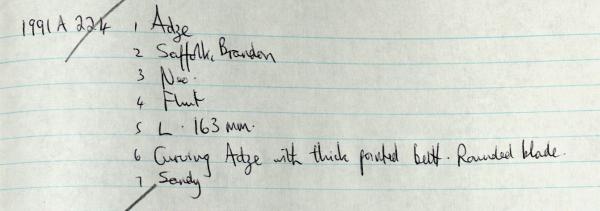 1991 A 224 1 Adze
2 Suffolk, Brandon
3 Neo.
4 Flint
5 L. 163 mm.
6 Curving Adze with thick pointed butt. Rounded blade.
7 Sandy